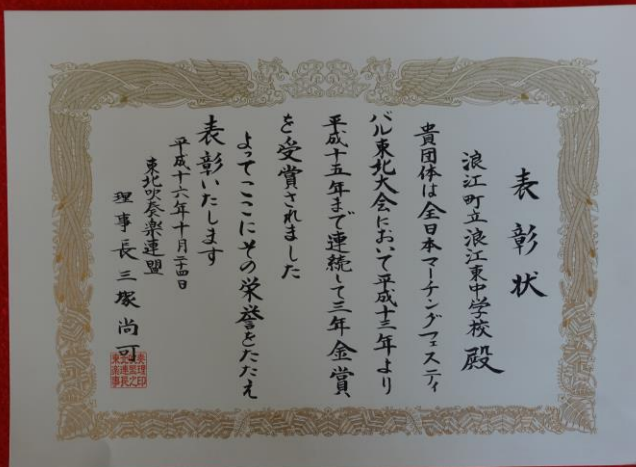 表彰状
浪江町立浪江東中学校 殿
貴団体は全日本マーチングフェスティ
バル東北大会において平成十三年より
平成十五年まで連続して三年金賞
を受賞されました
よってここにその栄誉をたたえ
表彰いたします
平成十六年十月二十四日
東北吹奏楽連盟
理事長 三塚尚可